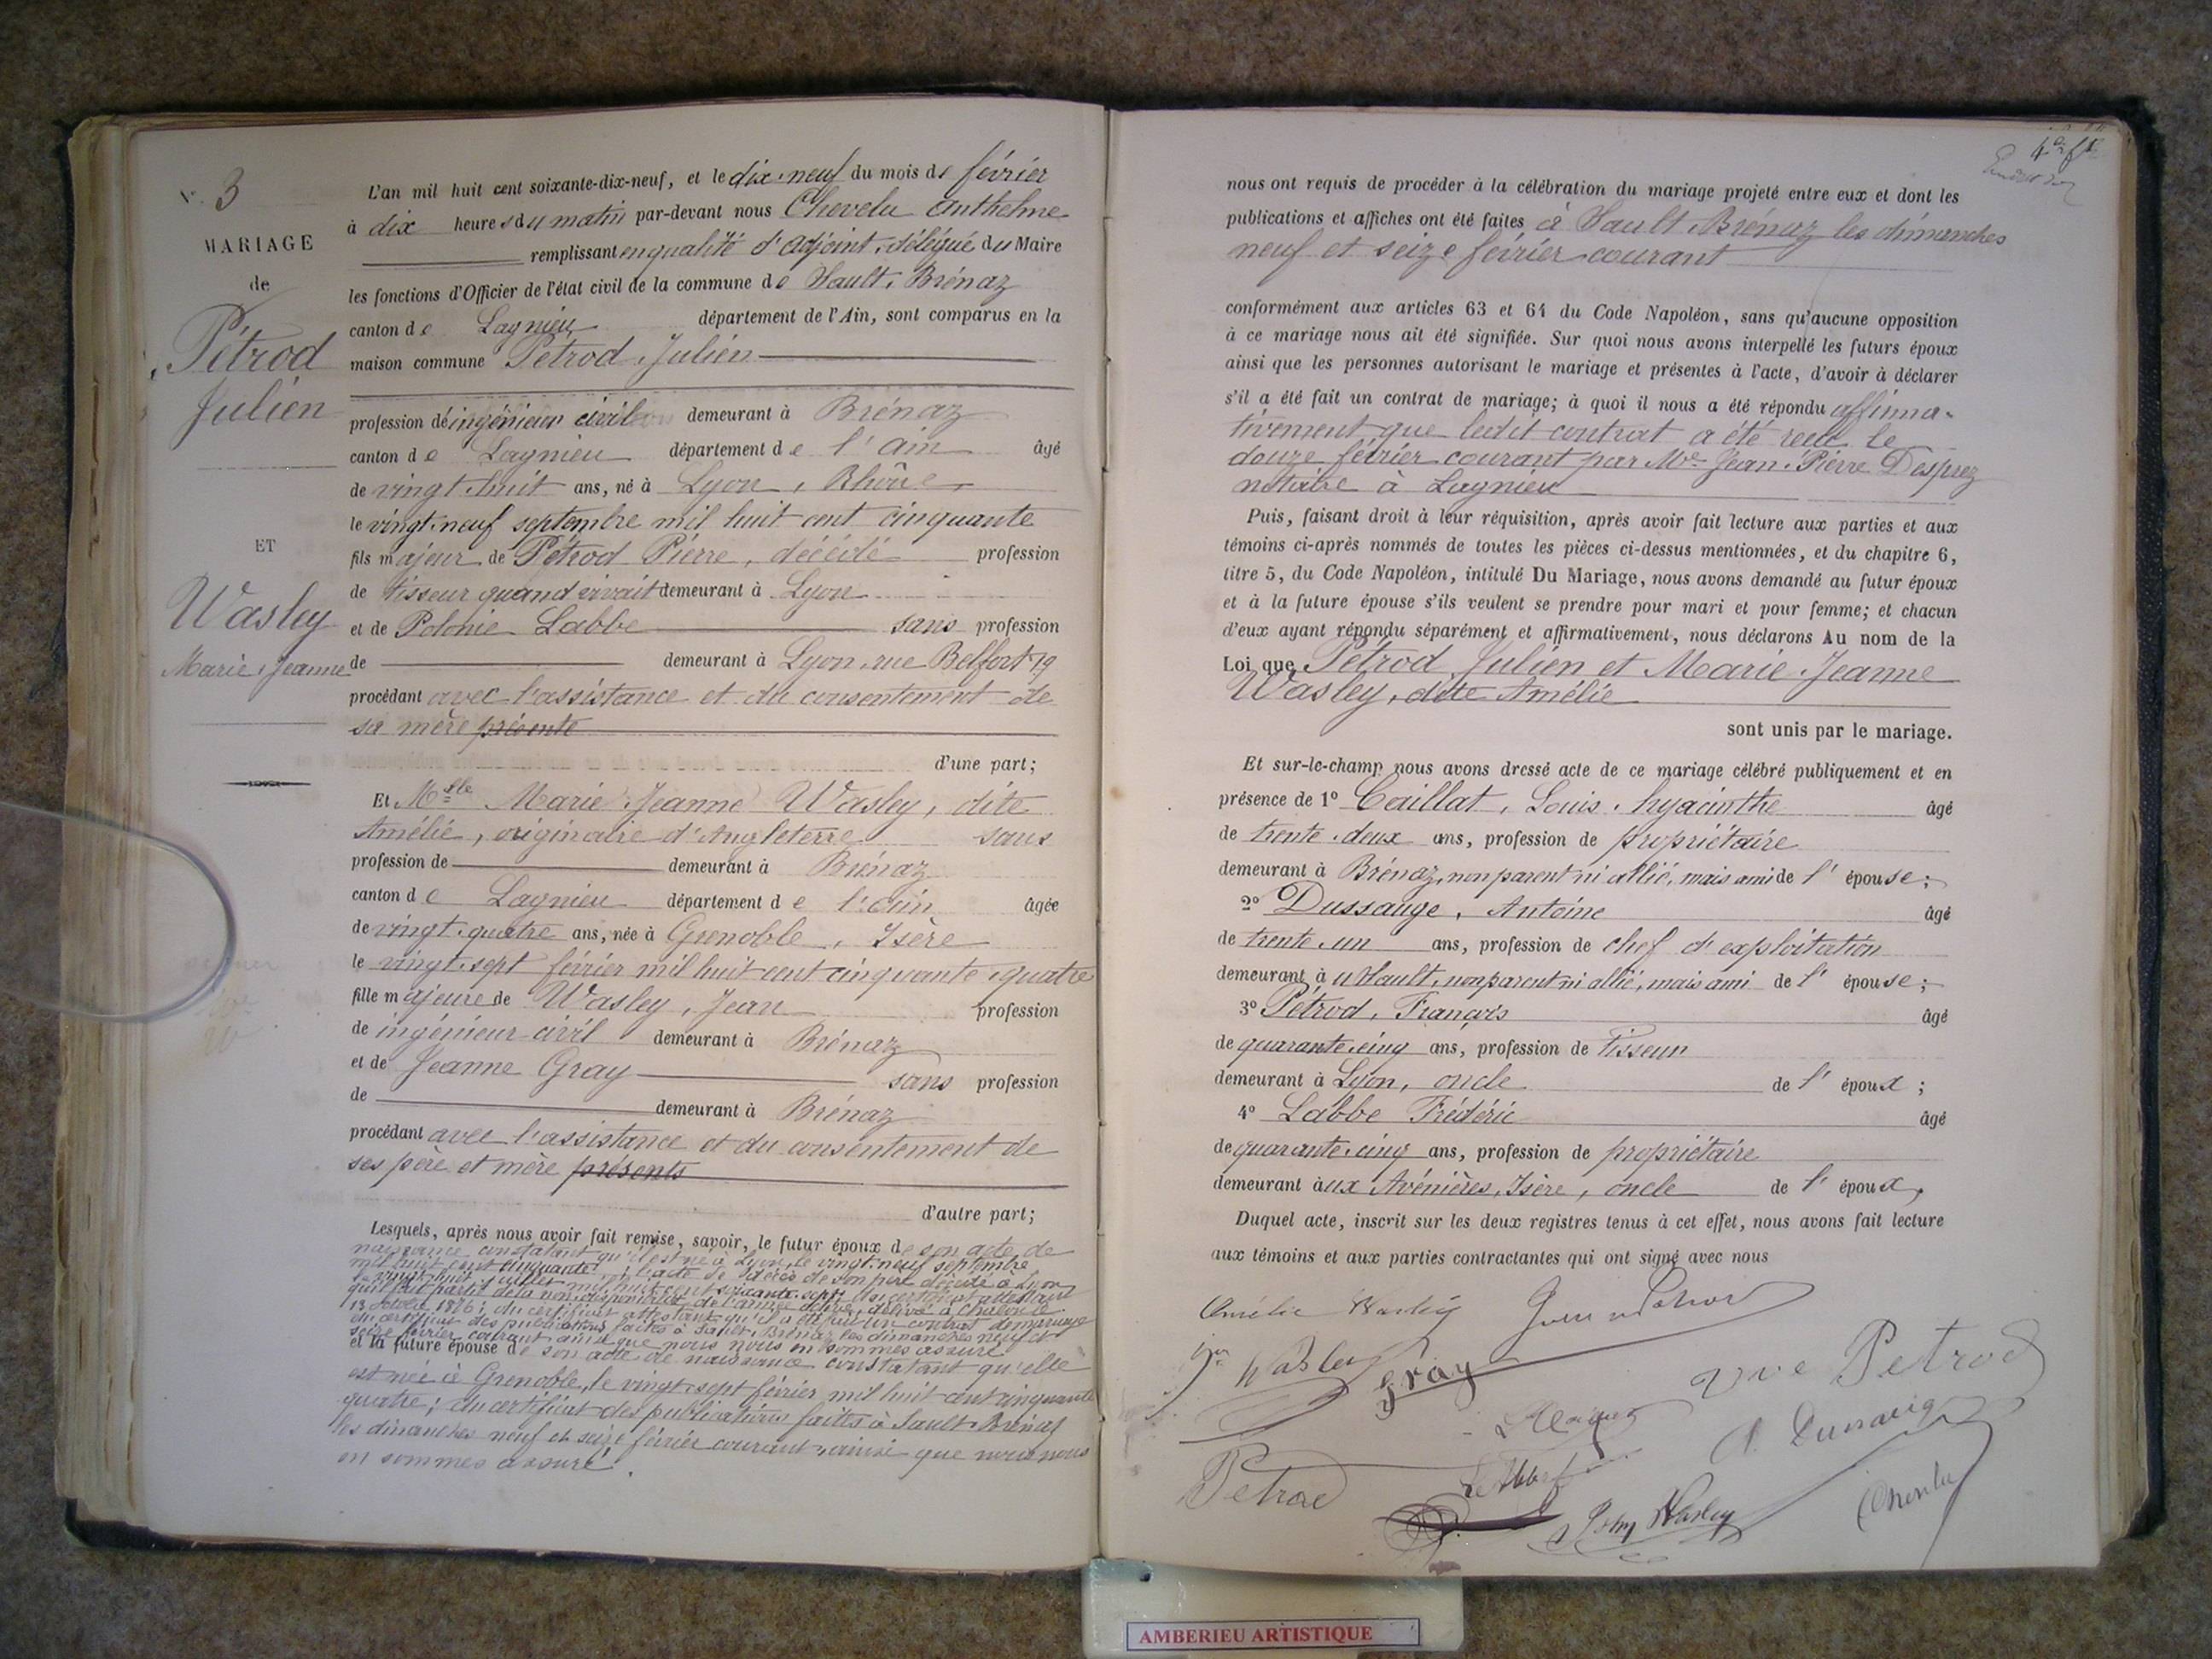 N° 3
MARIAGE
de
Pétrod
Julien
ET
Wasley
Marie Jeanne
L'an mil huit cent soixante-dix-neuf, et le dix-neuf du mois de février
à dix heures du matin par-devant nous Chevelu Anthelme
remplissant en qualité d'adjoint délégué du Maire
les fonctions d'Officier de l'état civil de la commune de Sault-Brénaz
canton de Lagnieu département de l'Ain, sont comparus en la
maison commune Pétrod Julien
profession de ingénieur civil demeurant à Brénaz
canton de Lagnieu département de l'Ain âgé
de vingt-huit ans, né à Lyon, Rhône,
le vingt-neuf septembre mil huit cent cinquante
fils majeur de Pétrod Pierre, décédé profession
de tisseur quand vivait demeurant à Lyon
et de Polonie Labbe sans profession
de demeurant à Lyon, rue Belfort 19
procédant avec l'assistance et du consentement de
sa mère présente
d'une part;
Et Melle Marie Jeanne Wasley, dite
Amélie, originaire d'Angleterre sans
profession de demeurant à Brénaz
canton de Lagnieu département de l'Ain âgée
de vingt-quatre ans, née à Grenoble, Isère
le vingt-sept février mil huit cent cinquante-quatre
fille majeure de Wasley, Jean profession
de ingénieur civil demeurant à Brénaz
et de Jeanne Gray sans profession
de demeurant à Brénaz
procédant avec l'assistance et du consentement de
ses père et mère présents
d'autre part;
Lesquels, après nous avoir fait remise, savoir, le futur époux de son acte de
naissance constatant qu'il est né à Lyon, le vingt-neuf septembre
mil huit cent cinquante; l'acte de décès de son père décédé à Lyon
le vingt-huit juillet mil huit cent soixante-sept; du certificat attestant
qu'il fait partie de la non-disponibilité de l'armée active, délivré à
13 octobre 1876; du certificat attestant qu'il a été fait un contrat de mariage
du certificat des publications faites à Sault-Brénaz les dimanches neuf et
seize février courant ainsi que nous nous en sommes assuré
et la future épouse de son acte de naissance constatant qu'elle
est née à Grenoble, le vingt-sept février mil huit cent cinquante
quatre; du certificat des publications faites à Sault-Brénaz
les dimanches neuf et seize février courant ainsi que nous nous
en sommes assuré.
nous ont requis de procéder à la célébration du mariage projeté entre eux et dont les
publications et affiches ont été faites à Sault-Brénaz les dimanches
neuf et seize février courant
conformément aux articles 63 et 64 du Code Napoléon, sans qu'aucune opposition
à ce mariage nous ait été signifiée. Sur quoi nous avons interpellé les futurs époux
ainsi que les personnes autorisant le mariage et présentes à l'acte, d'avoir à déclarer
s'il a été fait un contrat de mariage; à quoi il nous a été répondu affirma-
tivement que ledit contrat a été reçu le
douze février courant par Me Jean-Pierre Desprez
notaire à Lagnieu
Puis, faisant droit à leur réquisition, après avoir fait lecture aux parties et aux
témoins ci-après nommés de toutes les pièces ci-dessus mentionnées, et du chapitre 6,
titre 5, du Code Napoléon, intitulé Du Mariage, nous avons demandé au futur époux
et à la future épouse s'ils veulent se prendre pour mari et pour femme; et chacun
d'eux ayant répondu séparément et affirmativement, nous déclarons Au nom de la
Loi que Pétrod, Julien et Marie Jeanne
Wasley, dite Amélie
sont unis par le mariage.
Et sur-le-champ nous avons dressé acte de ce mariage célébré publiquement et en
présence de 1° Caillat, Louis-hyacinthe âgé
de trente-deux ans, profession de propriétaire
demeurant à Brénaz, non parent ni allié, mais ami de l'épouse;
2° Dussauge, Antoine âgé
de trente-un ans, profession de chef d'exploitation
demeurant à Sault, non parent ni allié, mais ami de l'épouse;
3° Pétrod, François âgé
de quarante-cinq ans, profession de Tisseur
demeurant à Lyon, oncle de l'époux;
4° Labbe Frédéric âgé
de quarante-cinq ans, profession de propriétaire
demeurant aux Avénières, Isère, oncle de l'époux,
Duquel acte, inscrit sur les deux registres tenus à cet effet, nous avons fait lecture
aux témoins et aux parties contractantes qui ont signé avec nous
Amélie Wasley
Wasley
Gray
vve Petrod
Petrod
John Wasley
Chevelu
AMBERIEU ARTISTIQUE